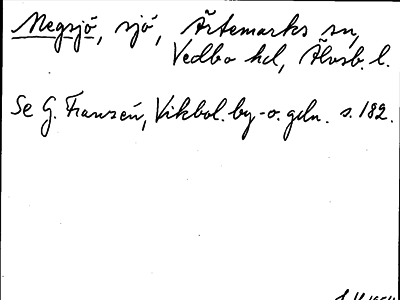 Negsjö, sjö, Ärtemarks sn,
Vedbo hd, Älvsb. l.
Se G. Franzén, Vikbol. by- o. gdn. s. 182.